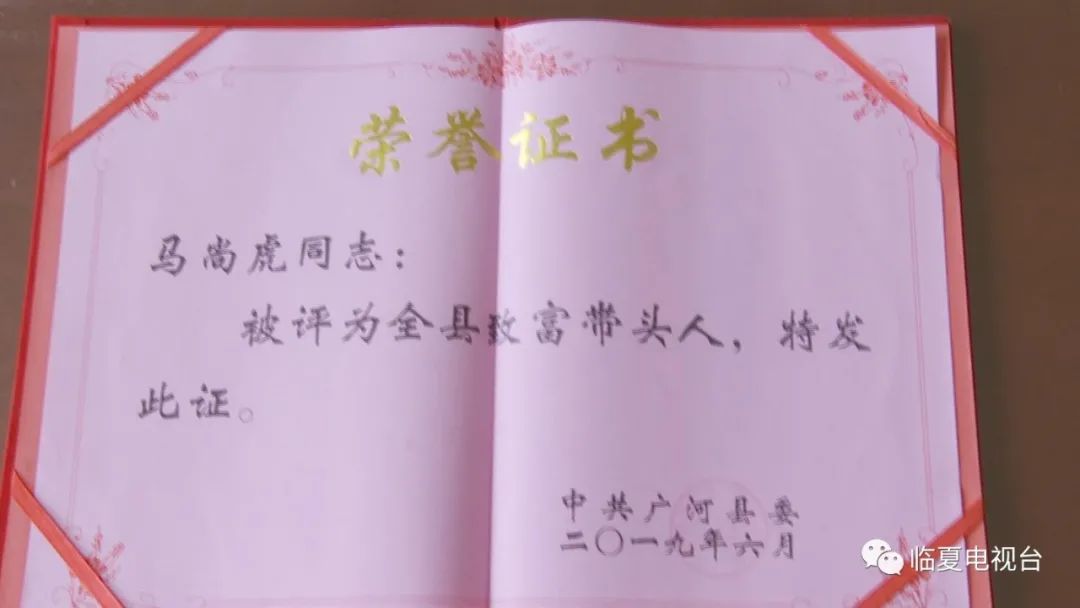 荣誉证书
马尚虎同志：
被评为全县致富带头人，特发
此证。
中共广河县委
二〇一九年六月
临夏电视台